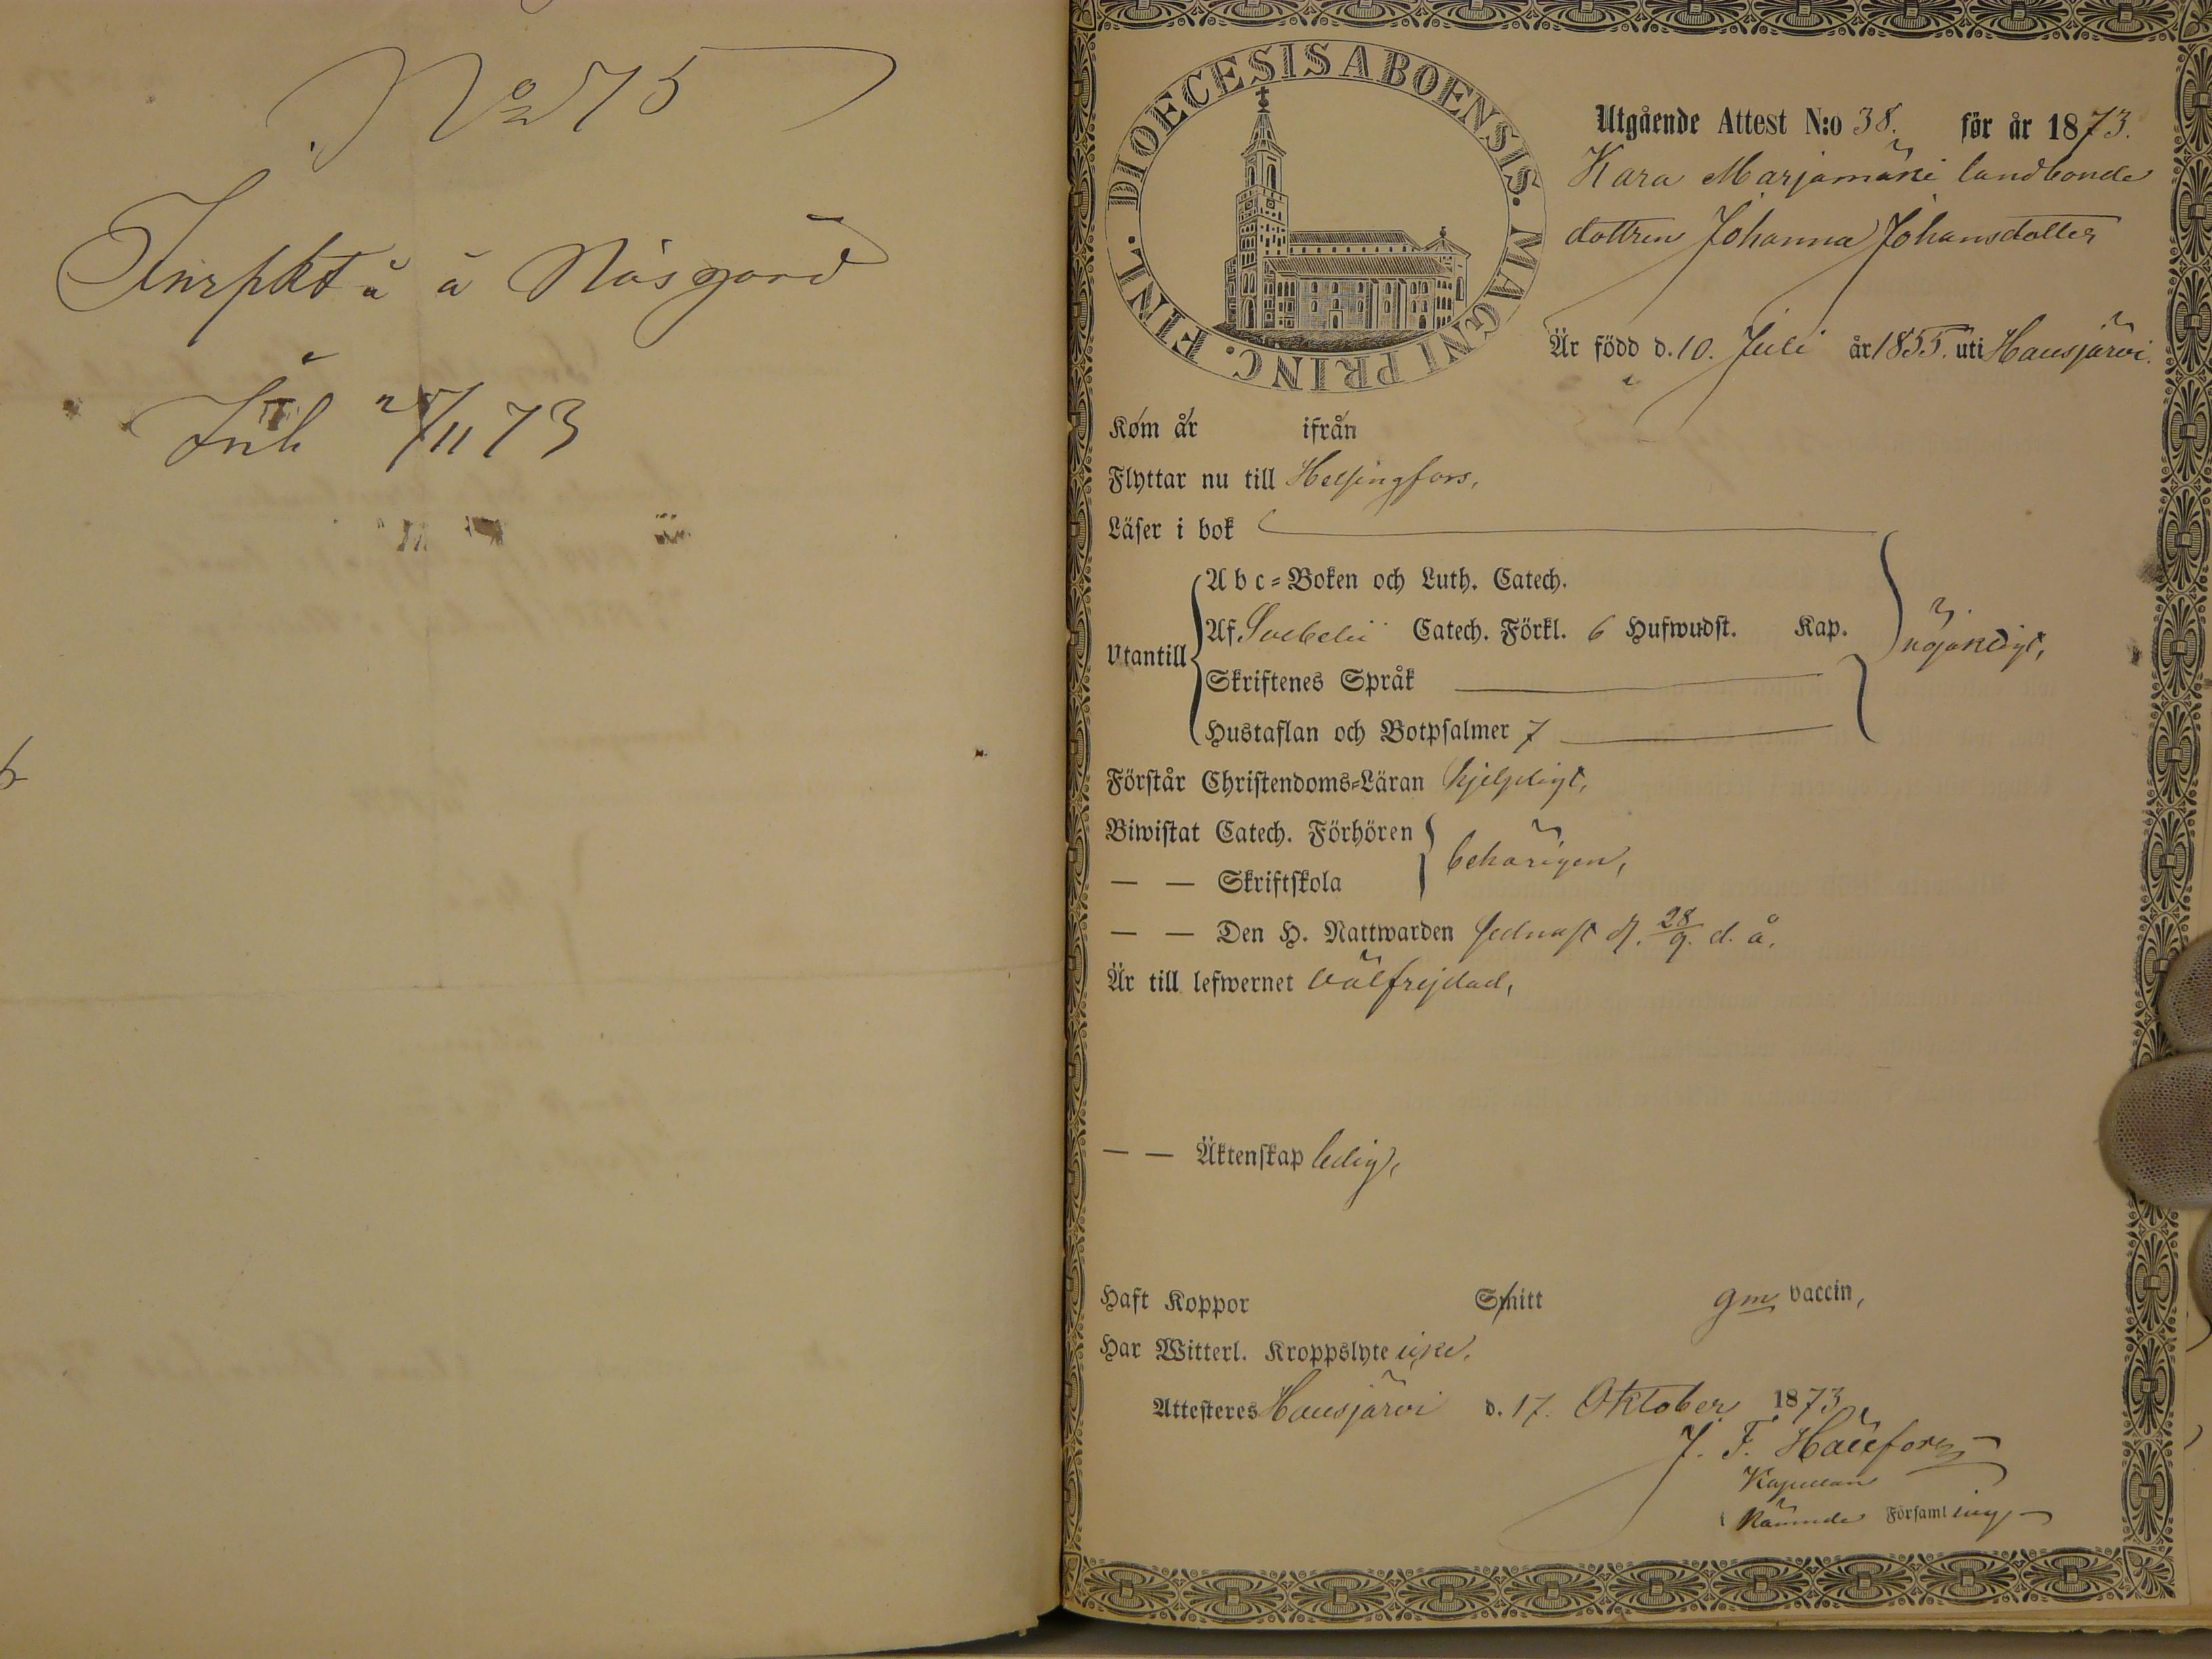 No 75
Inspkt å Näsgård
Inl 25/11 73
DIOECESIS ABOENSIS. MAGNI PRINC. FINL.
Utgående Attest N:o 38. för år 1873.
Kara Marjamäki landbonde
dottren Johanna Johansdotter
Är född d. 10. Juli år 1855. uti Hausjärvi.
Kom år ifrån
Flyttar nu till Helsingfors,
Läser i bok
Utantill
Abc-Boken och Luth. Catech.
Af Svebelii Catech. Förkl. 6 Hufwudst. Kap.
Skriftenes Språk
nöjaktigt,
Hustaflan och Botpsalmer 7
Förstår Christendoms-Läran hjelpligt,
Biwistat Catech. Förhören
— — Skriftskola
behörigen,
— — Den H. Nattwarden sednast d. 28/9. d. å.
Är till lefwernet välfrejdad,
— — Äktenskap ledig,
Haft Koppor Smitt gm vaccin,
Har Witterl. Kroppslyte icke.
Attesteres Hausjärvi d. 17. Oktober 1873
J. F. Hällfors
Kapellan
i Nämnde Församling